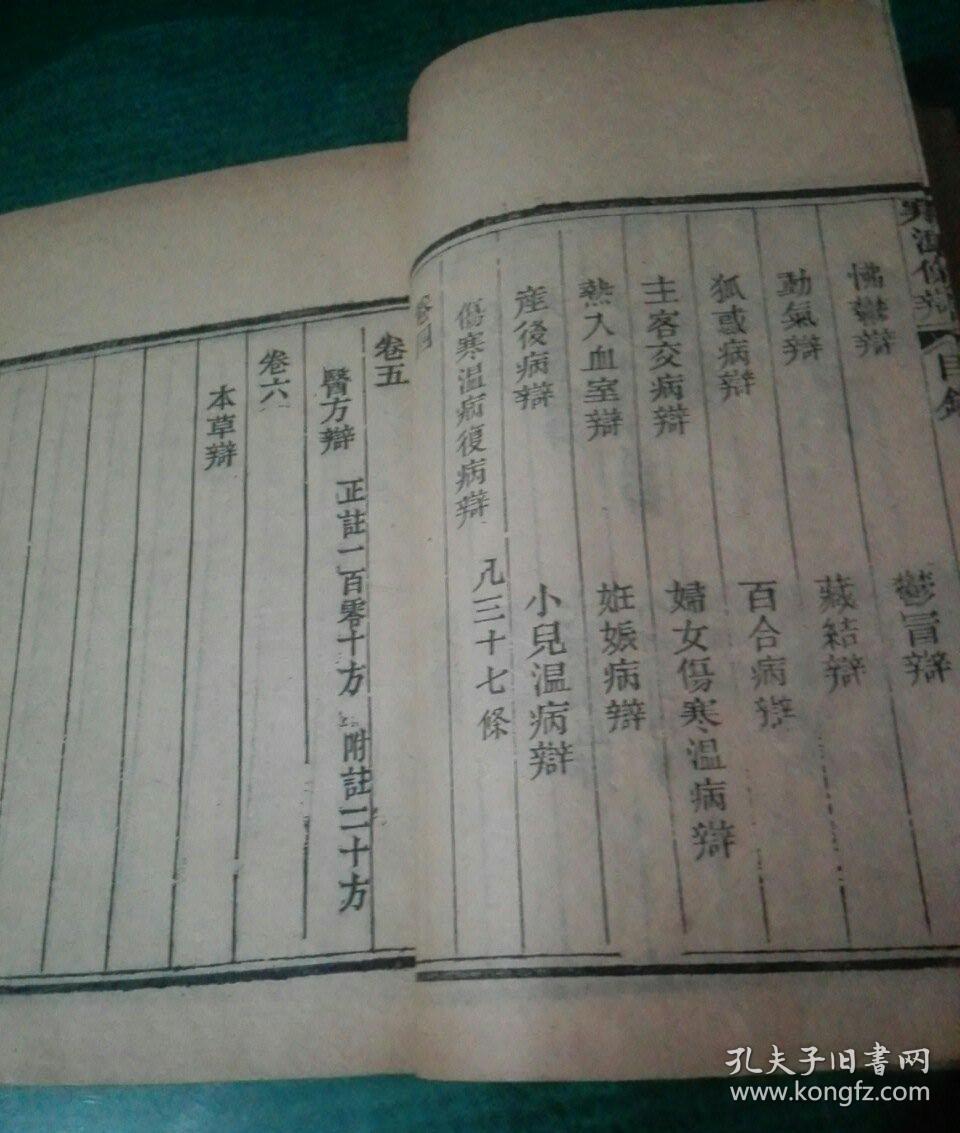 怫鬱辯 鬱冒辯
動氣辯 藏結辯
狐惑病辯 百合病辯
主客交病辯 婦女傷寒溫病辯
熱入血室辯 姙娠病辯
産後病辯 小兒溫病辯
傷寒溫病復病辯 凡三十七條
目錄
卷五
醫方辯 正註一百零十方 附註二十方
卷六
本草辯
孔夫子旧書网
www.kongfz.com